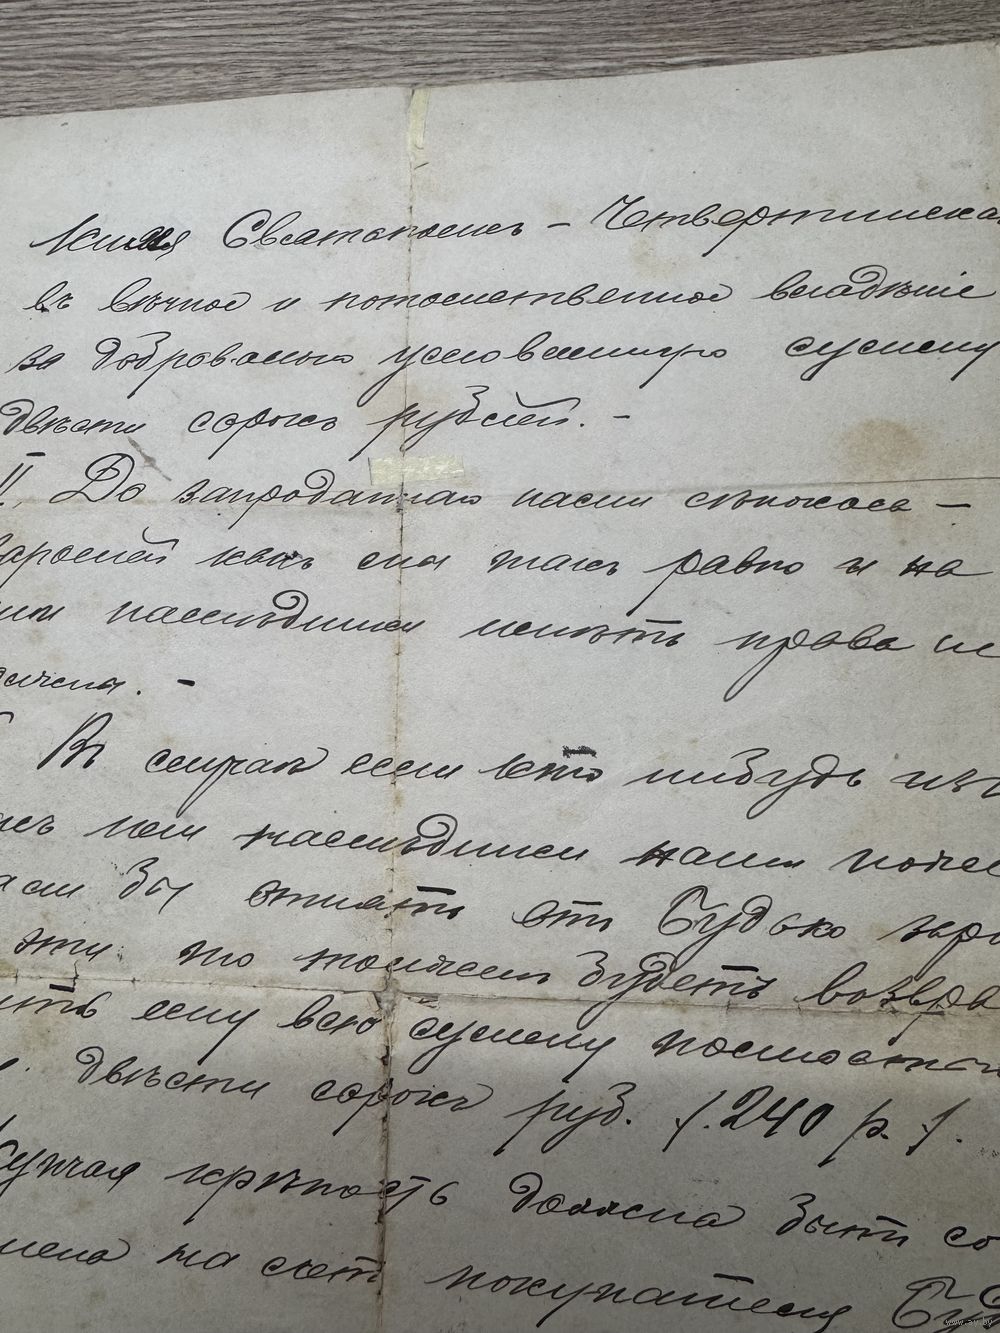 Князя Святополкъ - Четвертинска
въ вѣчное и потомственное владѣніе
за добровольно условленную сумму
двѣсти сорокъ рублей. -
II. До запроданнаго нами сѣнокоса -
зарослей какъ мы такъ равно и на
наслѣдники неимѣтъ права
. -
Въ случаѣ если кто нибудь изъ
насъ или наслѣдники наши
бы отнять отъ Будько заро
эти то долженъ будетъ возвра
ить ему всю сумму полностью
двѣсти сорокъ руб. /. 240 р. /.
Купчая крѣпость должна быть со
на счетъ покупателя Бу
www.ay.by